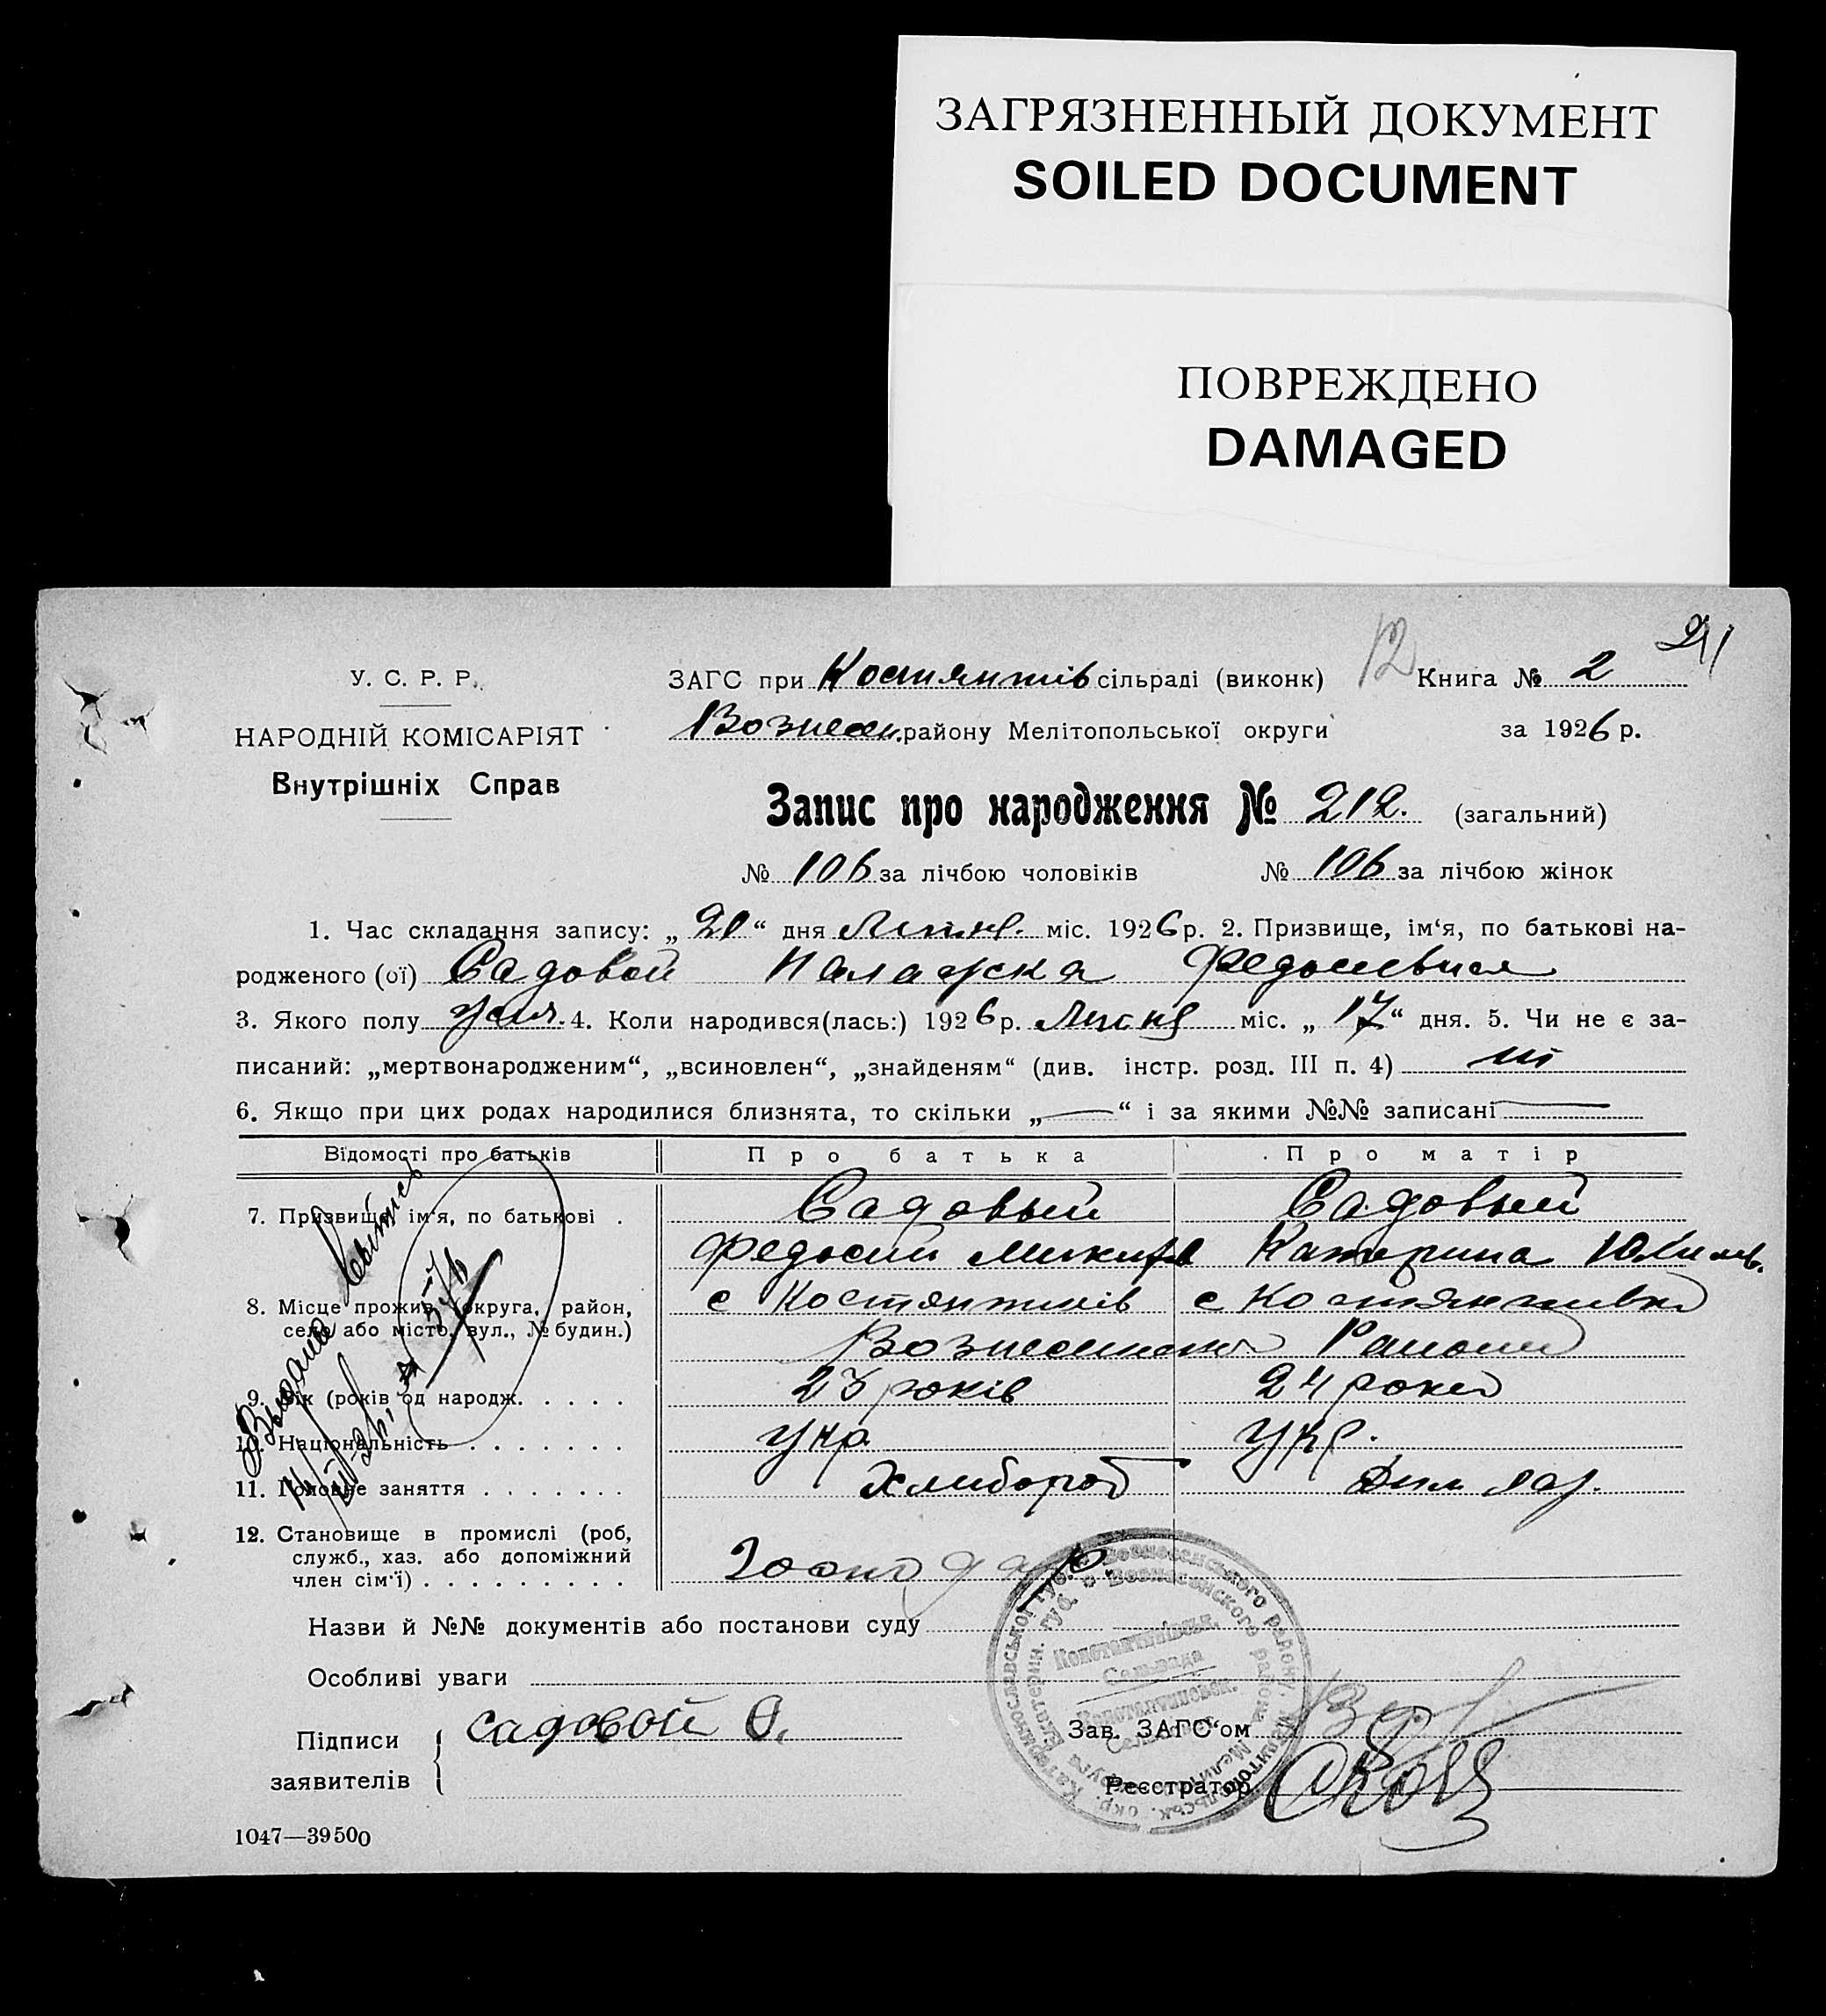 ЗАГРЯЗНЕННЫЙ ДОКУМЕНТ
SOILED DOCUMENT
ПОВРЕЖДЕНО
DAMAGED
12
У. С. Р. Р.
НАРОДНІЙ КОМІСАРІЯТ
Внутрішніх Справ
ЗАГС при Костянтів сільраді (виконк) Книга № 2
Вознесен. району Мелітопольської округи за 1926 р.
Запис про народження № 212. (загальний)
№ 106 за лічбою чоловіків № 106 за лічбою жінок
1. Час складання запису: „ 20 “ дня Липня. міс. 1926 р. 2. Призвище, ім‘я, по батькові на-
родженого (ої) Садовой Палажка Федосіевна
3. Якого полу жин. 4. Коли народився(лась:) 1926 р. Липня міс. „ 17 “ дня. 5. Чи не є за-
писаний: „мертвонародженим“, „всиновлен“, „знайденям“ (див. інстр. розд. III п. 4) ні
6. Якщо при цих родах народилися близнята, то скільки „ — “ і за якими №№ записані —
Відомості про батьків Про батька Про матір
7. Призвище, ім‘я, по батькові . Садовый Садовый
Федосий Микит Катерина
8. Місце прожив. (округа, район, с Костянтинів с Костянтивки
село або місто, вул., № будин.) Району
9. Вік (років од народж. . . . . 23 років 24 роки
10. Національність . . . . . . . Укр. Укр.
11. Головне заняття . . . . . . . Хлибороб
12. Становище в промислі (роб,
служб., хаз. або допоміжний
член сім‘ї) . . . . . . . . . Господар.
Назви й №№ документів або постанови суду
Особливі уваги
Підписи
заявителів
Садовой Ф.
Зав. ЗАГС‘ом
Реєстратор.
Выдана Выпись
1047—39500